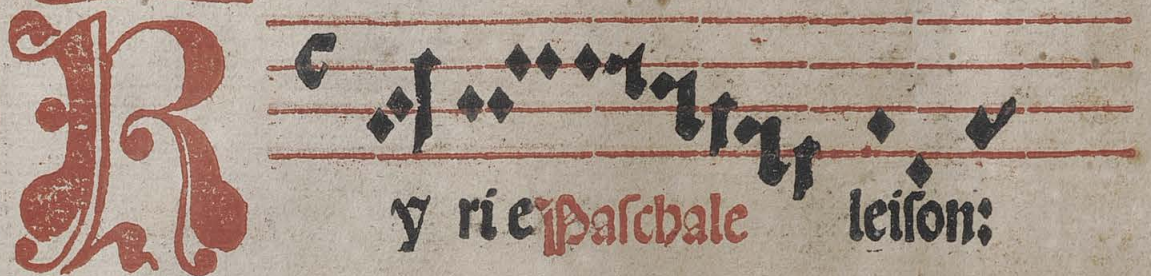 Ky rie Paſchale leiſon: